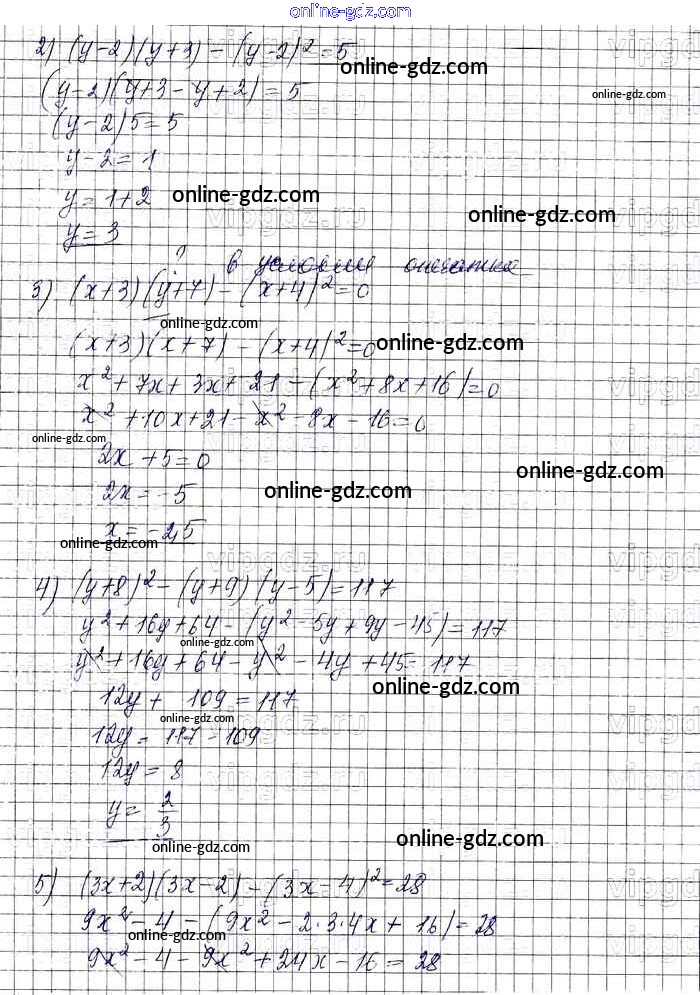 online-gdz.com
2) (y-2)(y+3) - (y-2)² = 5
online-gdz.com
(y-2)(y+3-y+2) = 5
online-gdz.com
(y-2)5 = 5
y-2 = 1
y = 1+2
online-gdz.com
online-gdz.com
y = 3
? в условии опечатка
3) (x+3)(y+7) - (x+4)² = 0
online-gdz.com
(x+3)(x+7) - (x+4)² = 0
online-gdz.com
x² + 7x + 3x + 21 - (x² + 8x + 16) = 0
x² + 10x + 21 - x² - 8x - 16 = 0
online-gdz.com
2x + 5 = 0
online-gdz.com
2x = -5
online-gdz.com
x = -2,5
online-gdz.com
vipgdz.ru
4) (y+8)² - (y+9)(y-5) = 117
y² + 16y + 64 - (y² - 5y + 9y - 45) = 117
online-gdz.com
y² + 16y + 64 - y² - 4y + 45 = 117
online-gdz.com
12y + 109 = 117
online-gdz.com
12y = 117 - 109
12y = 8
y = 2/3
online-gdz.com
online-gdz.com
5) (3x+2)(3x-2) - (3x-4)² = 28
9x² - 4 - (9x² - 2·3·4x + 16) = 28
online-gdz.com
9x² - 4 - 9x² + 24x - 16 = 28